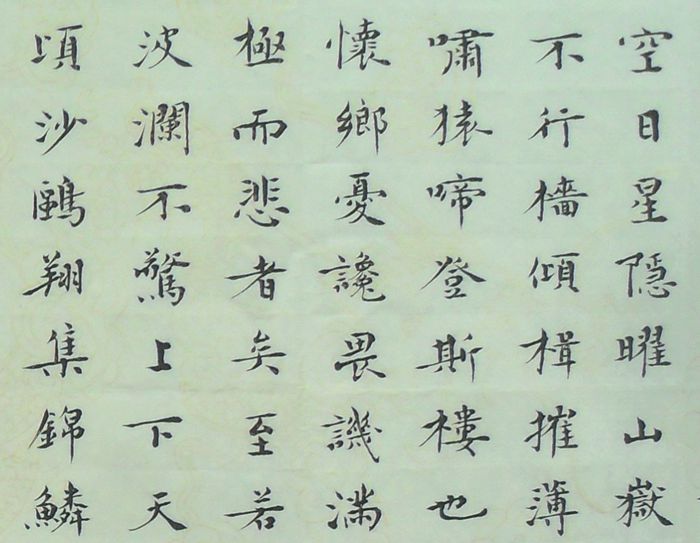 空日星隱曜山嶽
不行檣傾楫摧薄
嘯猿啼登斯樓也
懷鄉憂讒畏譏滿
極而悲者矣至若
波瀾不驚上下天
頃沙鷗翔集錦鱗